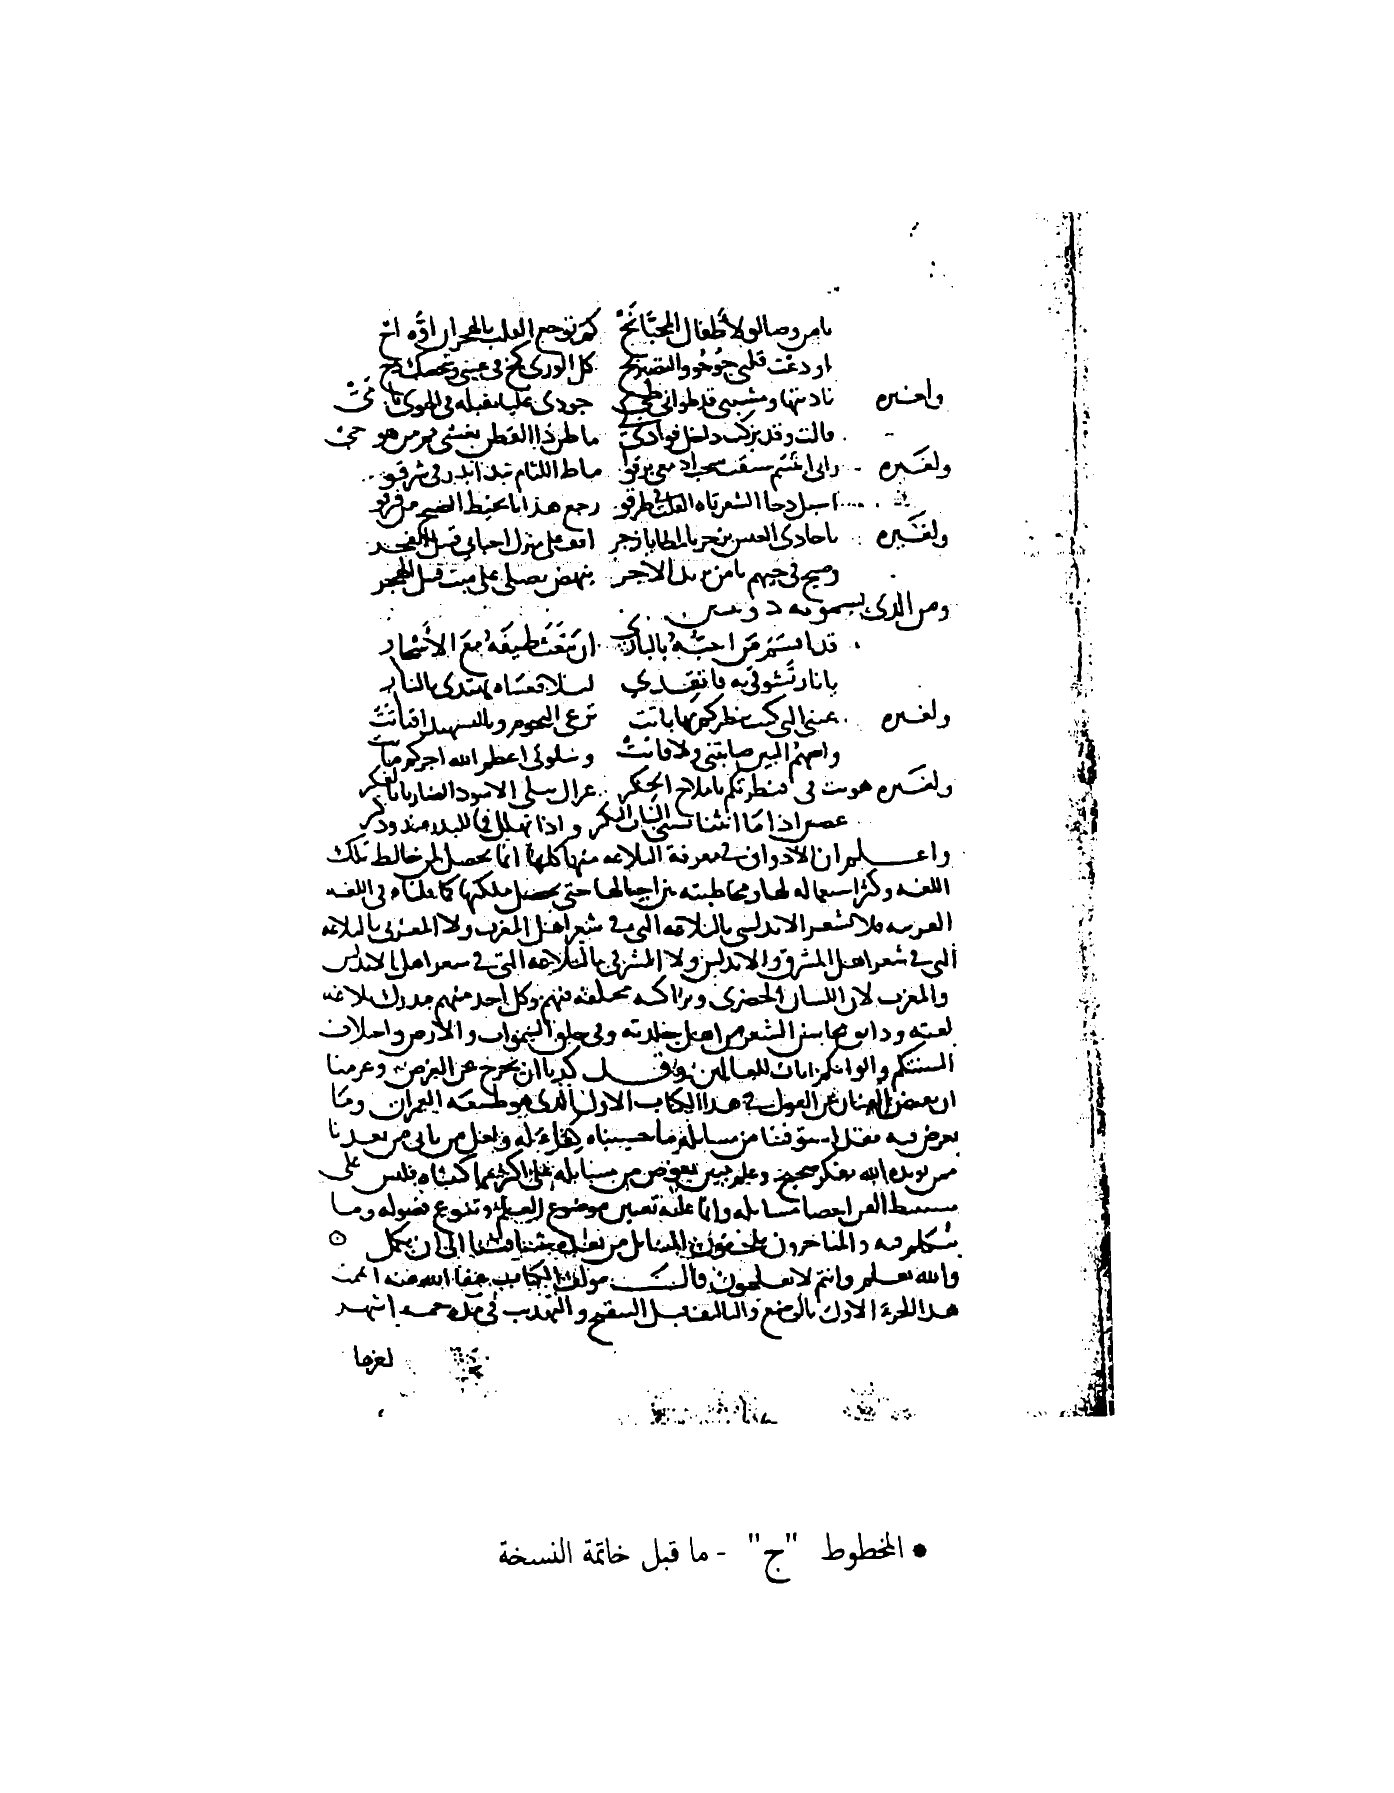 يامن وصالو لأطفال المحبَّا بَحْ كم توجع القلب بالهجران اوَّه احْ
اودعْت قلبي حوحو والتصبر بح كل الورى كخ في عيني وشخصك دح
ولغيره ناديتها ومشيبي قد طواني طي جودي عليا بقبله في الهوى يا مي
قالت وقد كت داخل فوادي كي ما ظن ذا القطن يغشى فم من هو حي
ولغيره راني ابتسم سبقت سحب ادمعي برقو ماط اللثام تبدا بدر في شرقو
اسبل دجا الشعر تاه القلب في طرقو رجع هدانا بخيط الصبح من فرقو
ولغيره ياحادي العيس زجر بالمطايا زجر اقف على منزل احبابي قبيل الفجر
وصيح في حيهم يامن يريد الاجر ينهض يصلي على ميت قتيل الهجر
ومن الذي يسمونه دوبيتين
قد اقسم من احبه بالباري ان يبعث طيفه مع الأسحار
يا نار تشوقي به فاتقدي ليلا فعساه يهتدي بالنار
ولغيره عيني التي كنت نظركم بها باتت ترعى النجوم وبالتسهيد اقتاتت
واسهم البين صابتني ولا فاتت وسلوتي اعظم الله اجركم ماتت
ولغيره هويت في قنطرتكم ياملاح الحكر غزال يبلي الاسود الضاريا بالفكر
غصن اذا ما انثنا يسبي البنات البكر واذا تهلل فما للبدر عندو ذكر
واعلم ان الادواق في معرفة البلاغه منها كلها انما يحصل لمن خالط تلك
اللغه وكثر استعماله لها ومخاطبته بين اجيالها حتى يحصل ملكتها كما قلناه في اللغه
العربيه فلا يشعر الاندلسي بالبلاغه التي في شعر اهل المغرب ولا المغربي بالبلاغه
التي في شعر اهل المشرق والاندلس ولا المشرقي بالبلاغه التي في شعر اهل الاندلس
والمغرب لان اللسان الحضري وتراكيبه مختلفه فيهم وكل احد منهم مدرك بلاغه
لغته وذايق محاسن الشعر من اهل جلدته وفي خلق السموات والارض واختلاف
السنتكم والوانكم ايات للعالمين وقد كدنا ان نخرج عن الغرض وعزمنا
ان نقبض العنان عن القول في هذا الكتاب الاول الذي هو طبيعة العمران وما
يعرض فيه فقد استوفينا من مسايله ما حسبناه كفاء له ولعل من ياتي من بعدنا
ممن يويده الله بفكر صحيح وعلم مبين يغوص من مسايله على اكثر مما كتبناه فليس على
مستنبط الفن احصا مسايله وانما عليه تعيين موضوع العلم وتنويع فصوله وما
يتكلم فيه والمتاخرون يلحقون المسايل من بعده شيئا فشيئا الى ان يكمل
والله يعلم وانتم لا تعلمون قال مولف الكتاب عفا الله عنه اتممت
هذا الجزء الاول بالوضع والتاليف قبل التنقيح والتهذيب في مدة خمسه اشهر
اخرها
• المخطوط "ج" - ما قبل خاتمة النسخة